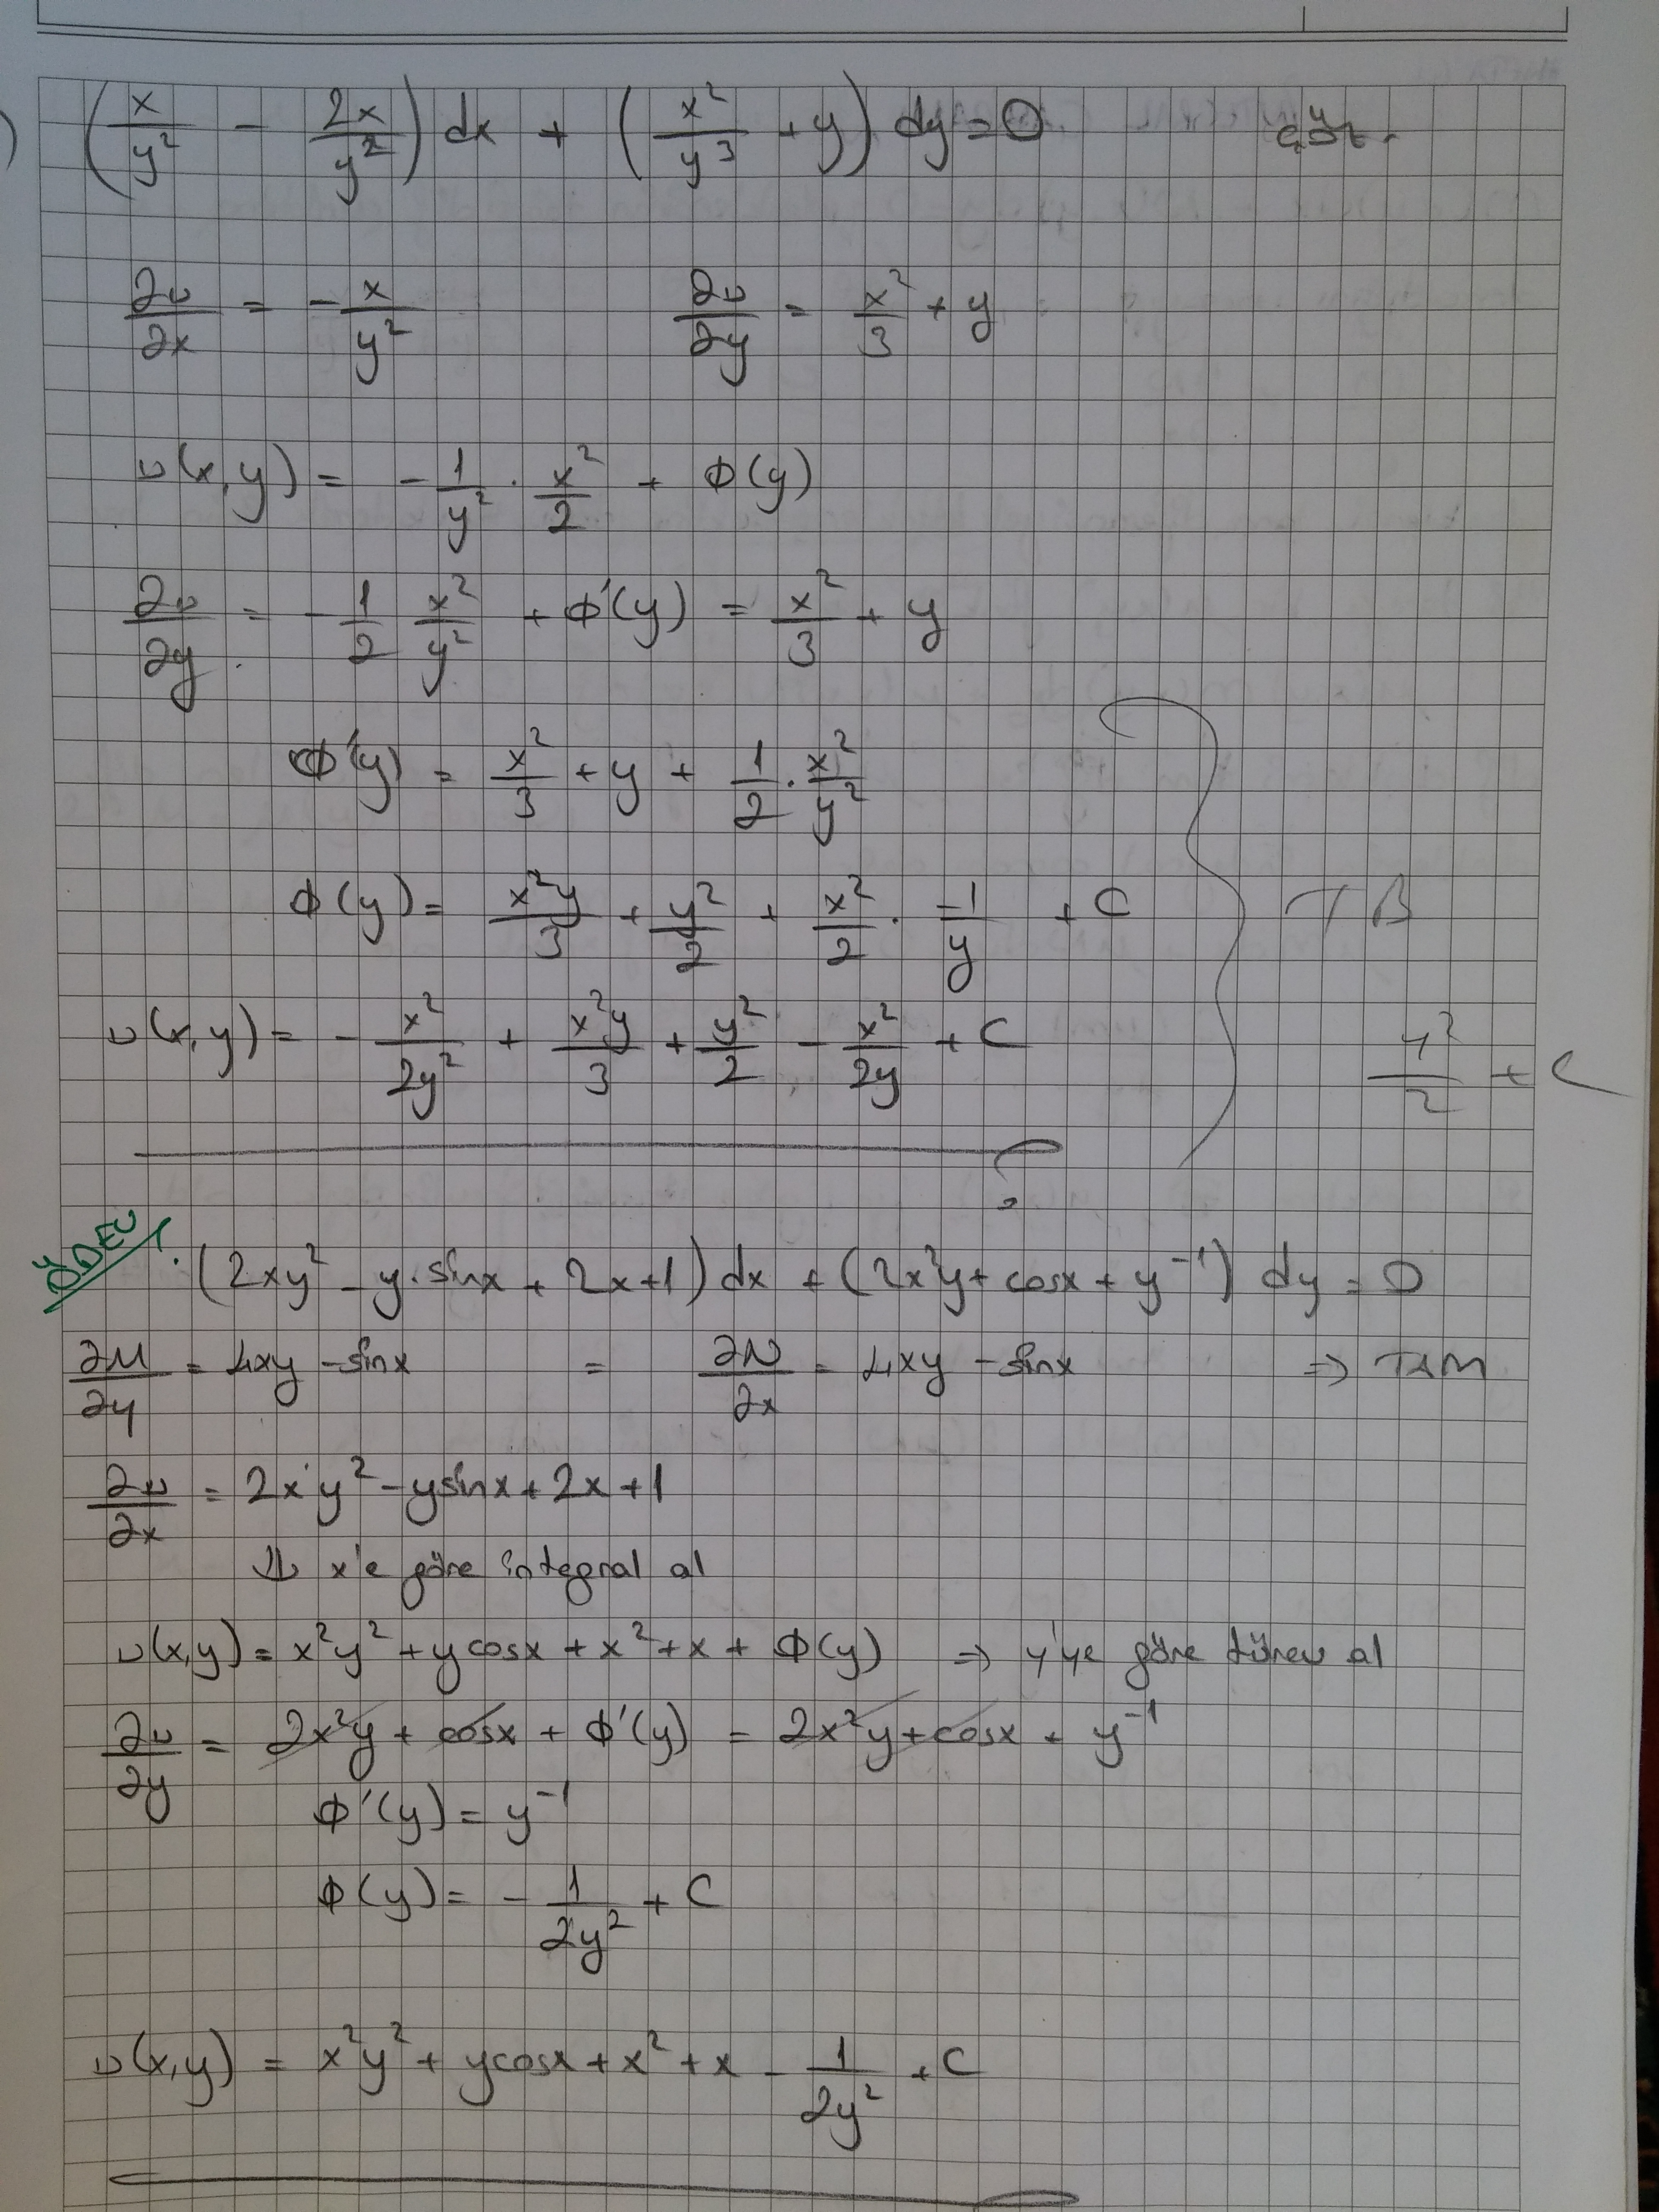 ) (x/y² - 2x/y²) dx + (x²/y³ + y) dy = 0 çöz.
∂u/∂x = -x/y² ∂u/∂y = x²/3 + y
u(x,y) = -1/y² · x²/2 + Φ(y)
∂u/∂y = -1/2 x²/y² + Φ'(y) = x²/3 + y
Φ'(y) = x²/3 + y + 1/2 · x²/y²
Φ(y) = x²y/3 + y²/2 + x²/2 · -1/y + C
u(x,y) = -x²/2y² + x²y/3 + y²/2 - x²/2y + C
y²/2 + C
ÖDEV (2xy² - y·sinx + 2x+1) dx + (2x²y + cosx + y⁻¹) dy = 0
∂M/∂y = 4xy - sinx = ∂N/∂x = 4xy - sinx => TAM
∂u/∂x = 2xy² - ysinx + 2x + 1
⇓ x'e göre integral al
u(x,y) = x²y² + ycosx + x² + x + Φ(y) => y'ye göre türev al
∂u/∂y = 2x²y + cosx + Φ'(y) = 2x²y + cosx + y⁻¹
Φ'(y) = y⁻¹
Φ(y) = -1/2y² + C
u(x,y) = x²y² + ycosx + x² + x - 1/2y² + C